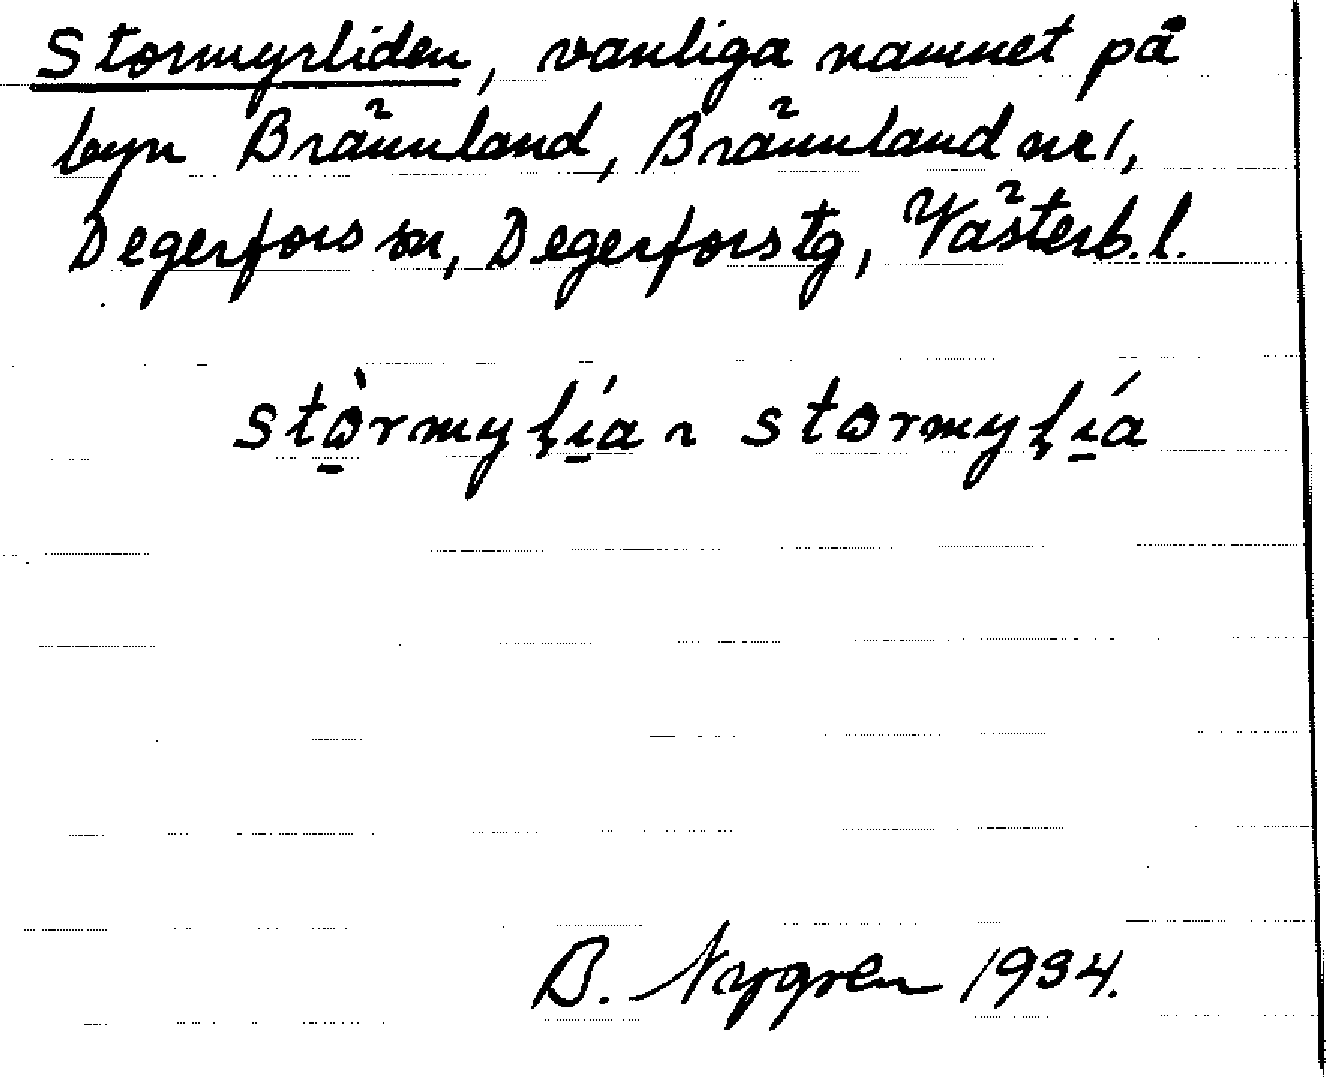 Stormyrliden, vanliga namnet på
byn Brännland, Brännland nr 1,
Degerfors sn, Degerfors tg, Västerb. l.
stò̠rmyɫí̠a ~ stormyɫí̠a
B. Nygren 1934.